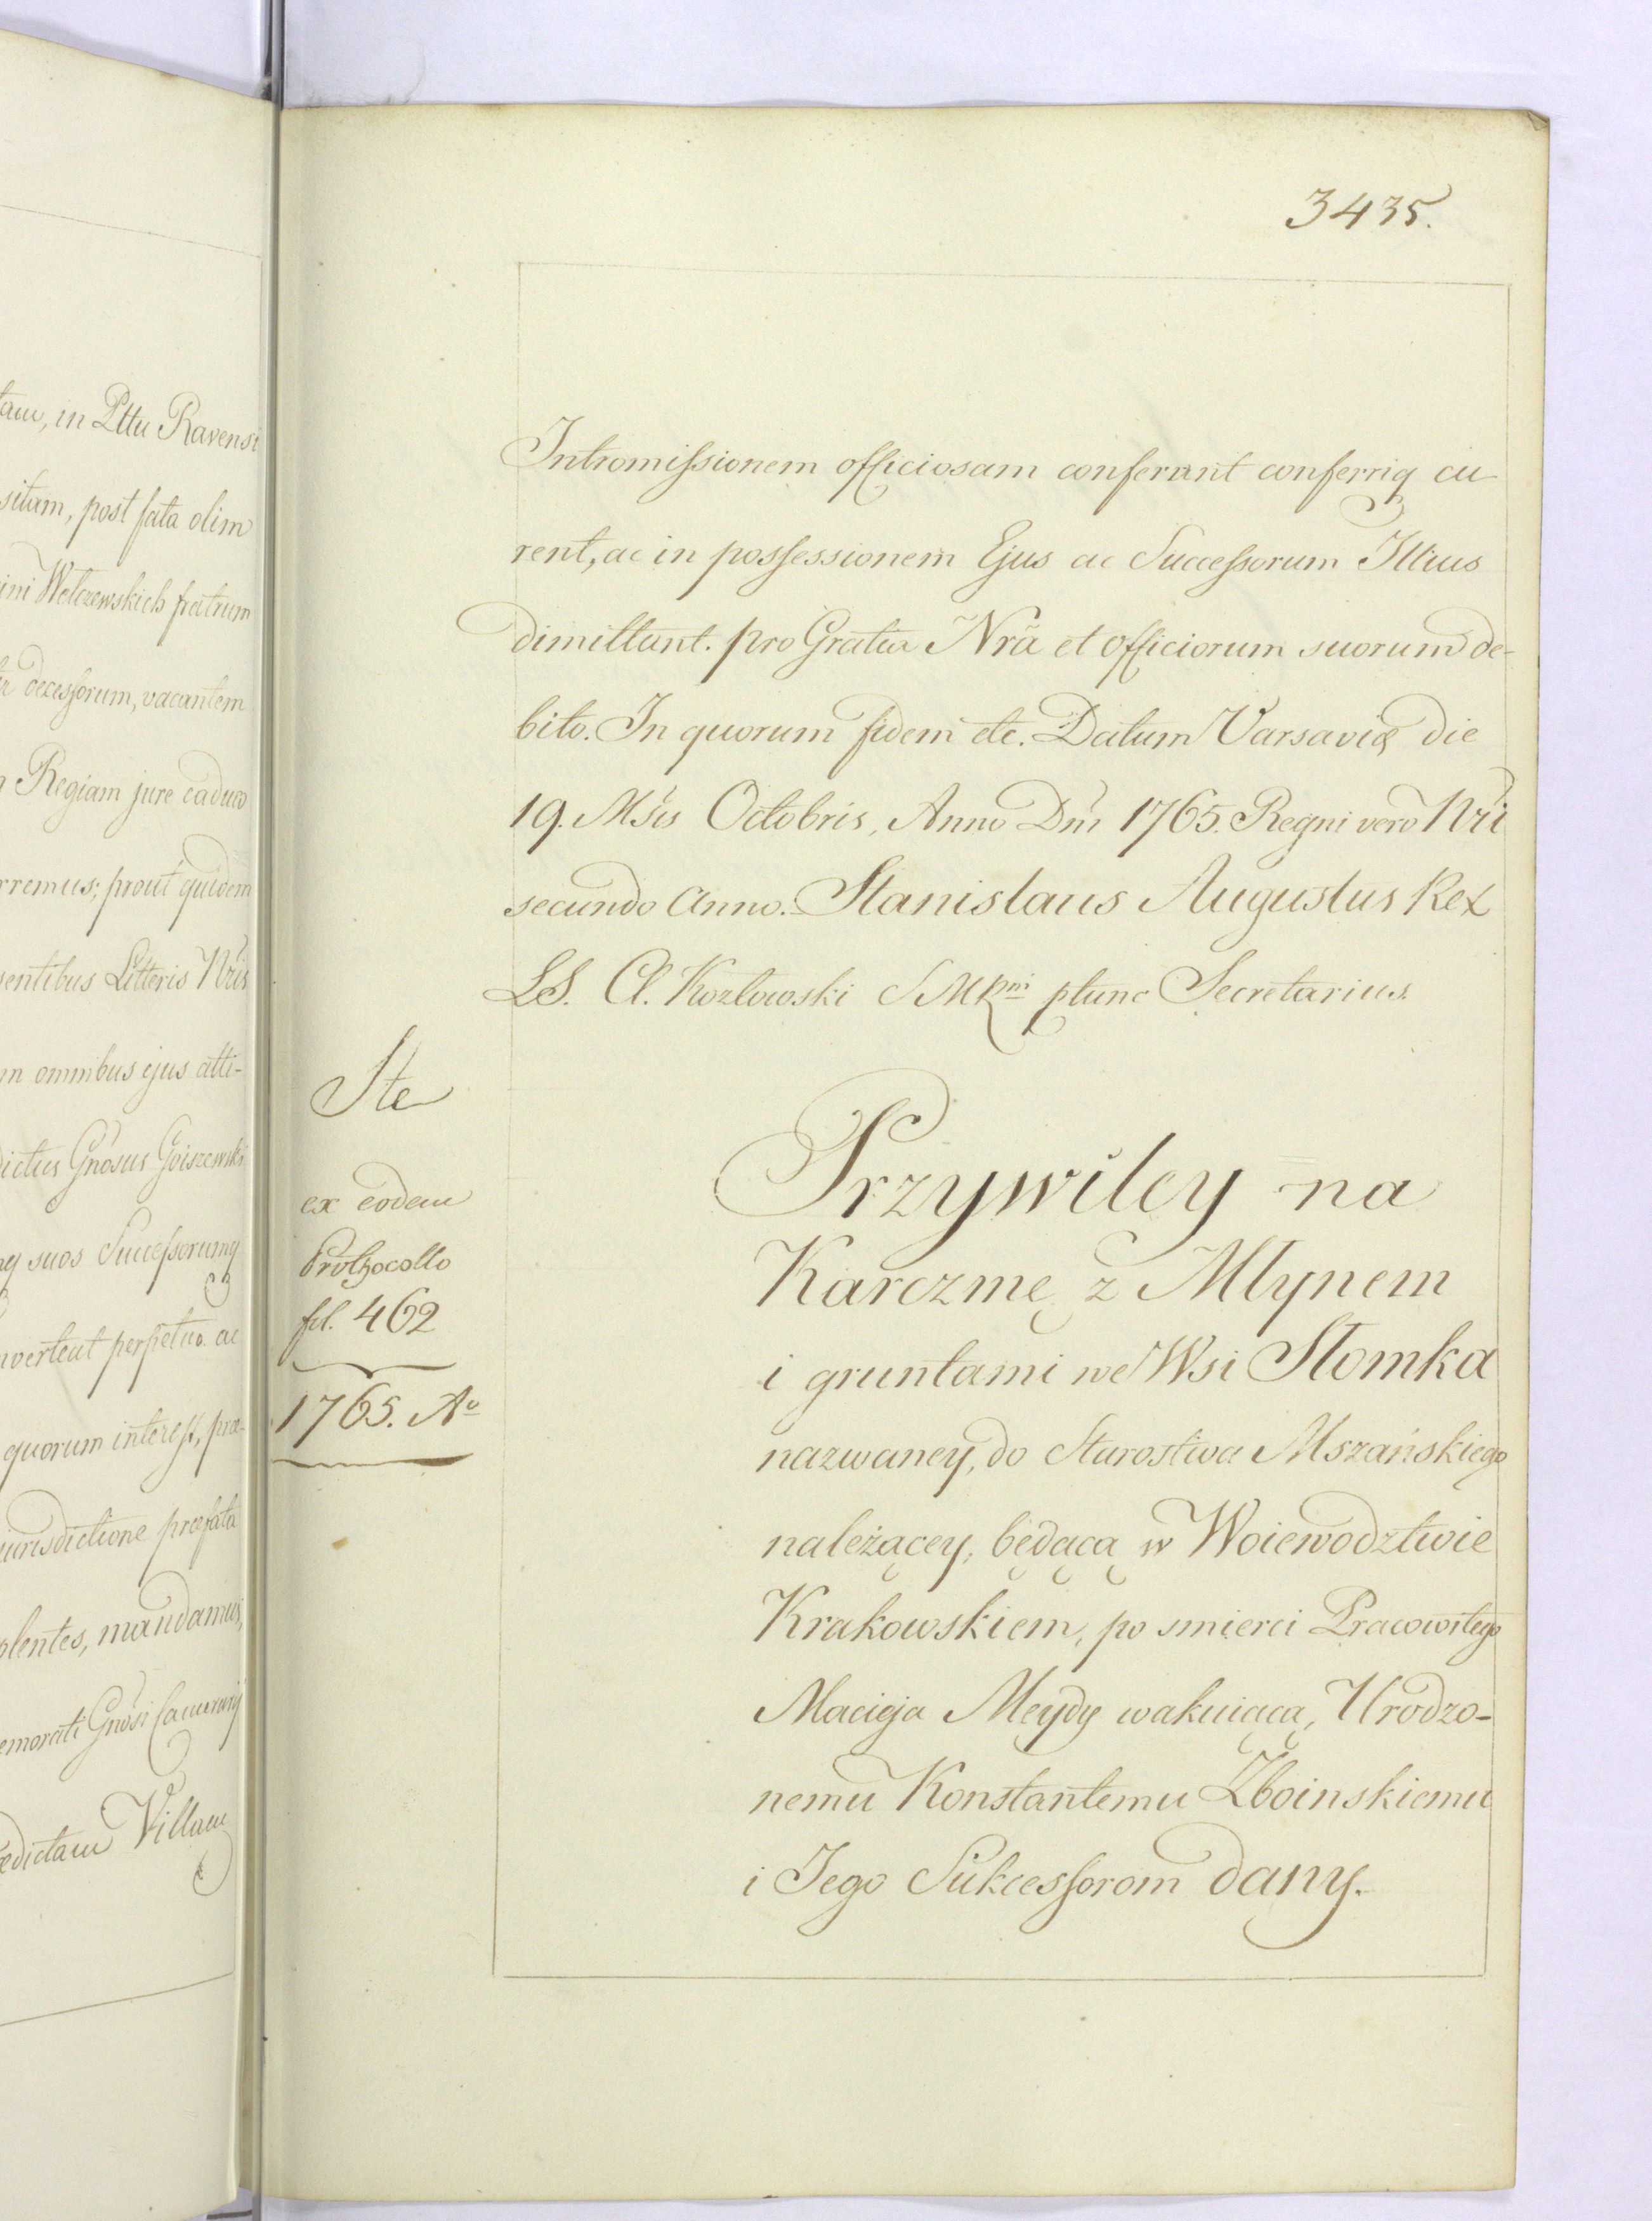 tam, in Pttu Ravensi
sitam, post fata olim
ini Welczewskich fratrum
decessorum, vacantem
Regiam jure caduco
rremus; prout quidem
sentibus Litteris Nris
m omnibus ejus atti-
dictus Gnosus Goiszewski
q suos Successorumq
nvertent perpetuo. ac
quorum interest, prae-
jurisdictione praefata
olentes, mandamus,
emorati Gnosi
edictam Villam
3435.
Intromissionem officiosam conferant conferriq cu
rent, ac in possessionem Ejus ac Successorum Illius
dimittant. pro Gratia Nrã et officiorum suorum de-
bito. In quorum fidem etc. Datum Varsaviæ die
19. Msis Octobris, Anno Dni 1765. Regni vero Nri
secundo Anno. Stanislaus Augustus Rex
LS. Cl. Kozłowski SMRni ptunc Secretarius.
Ste
ex eodem
Prothocollo
fol. 462
1765. Ao
Przywiley na
Karczmę z Młynem
i gruntami we Wsi Słomka
nazwaney, do Starostwa Mszańskiego
należącey, będącą w Woiewodztwie
Krakowskiem, po smierci Pracowitego
Macieja Meydy wakuiącą, Urodzo-
nemu Konstantemu Zboinskiemu
i Jego Sukcessorom dany.